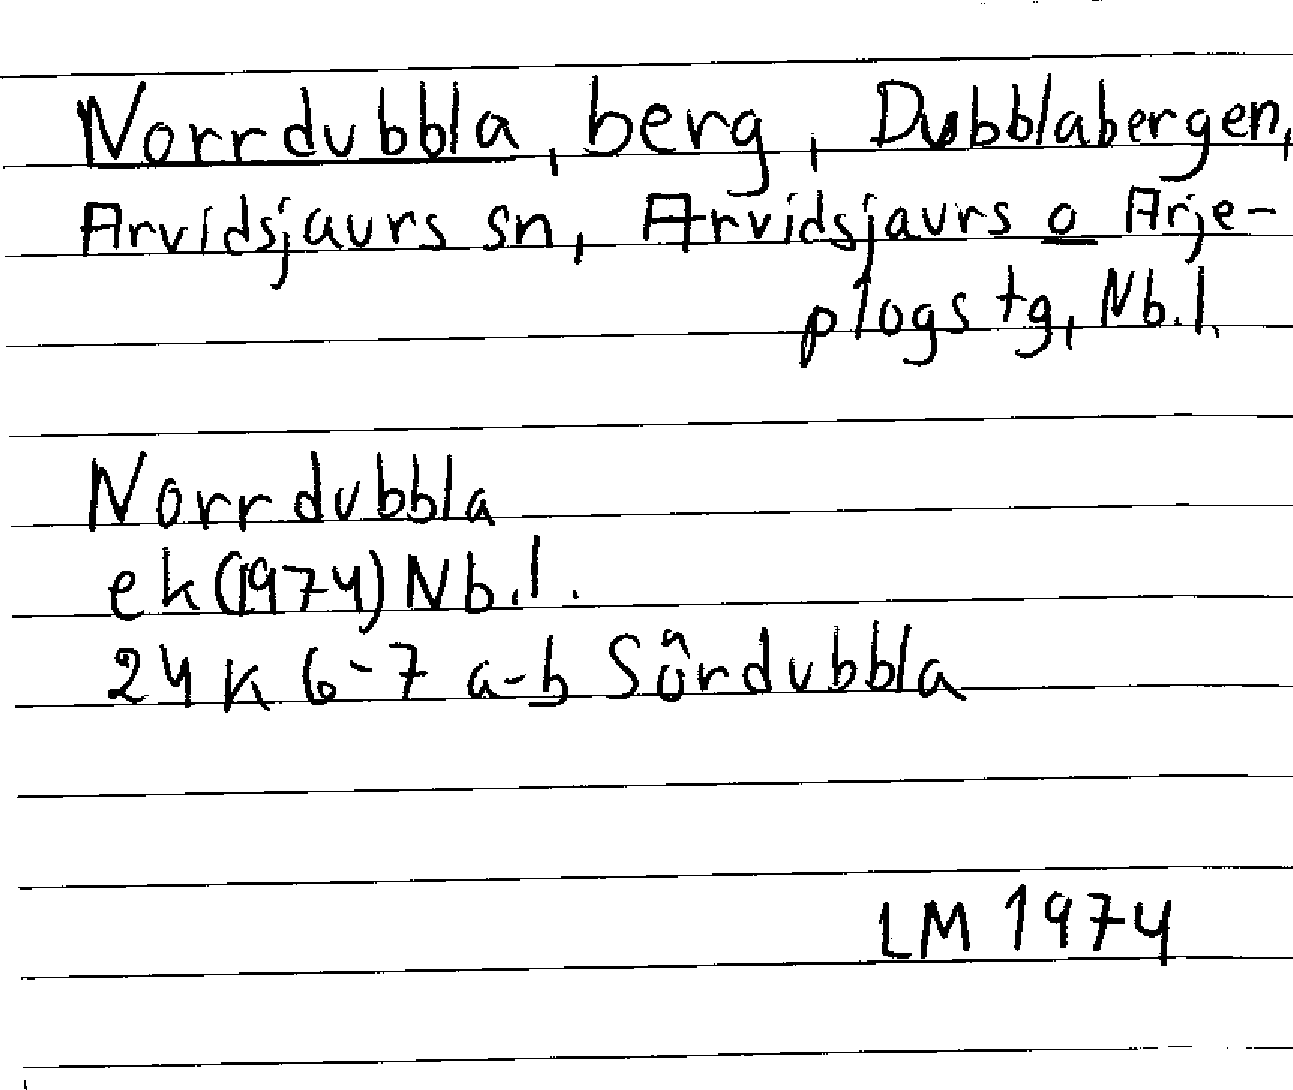 Norrdubbla, berg, Dubblabergen,
Arvidsjaurs sn, Arvidsjaurs o Arje-
plogs tg, Nb.l.
Norrdubbla
ek(1974) Nb.l.
24K 6-7 a-b Sördubbla
LM 1974